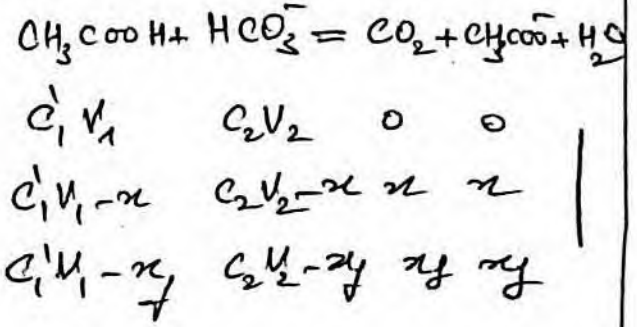 CH₃COOH + HCO₃⁻ = CO₂ + CH₃COO⁻ + H₂O
C₁' V₁ C₂V₂ 0 0
C₁'V₁-x C₂V₂-x x x
C₁'V₁-x_f C₂V₂-x_f x_f x_f